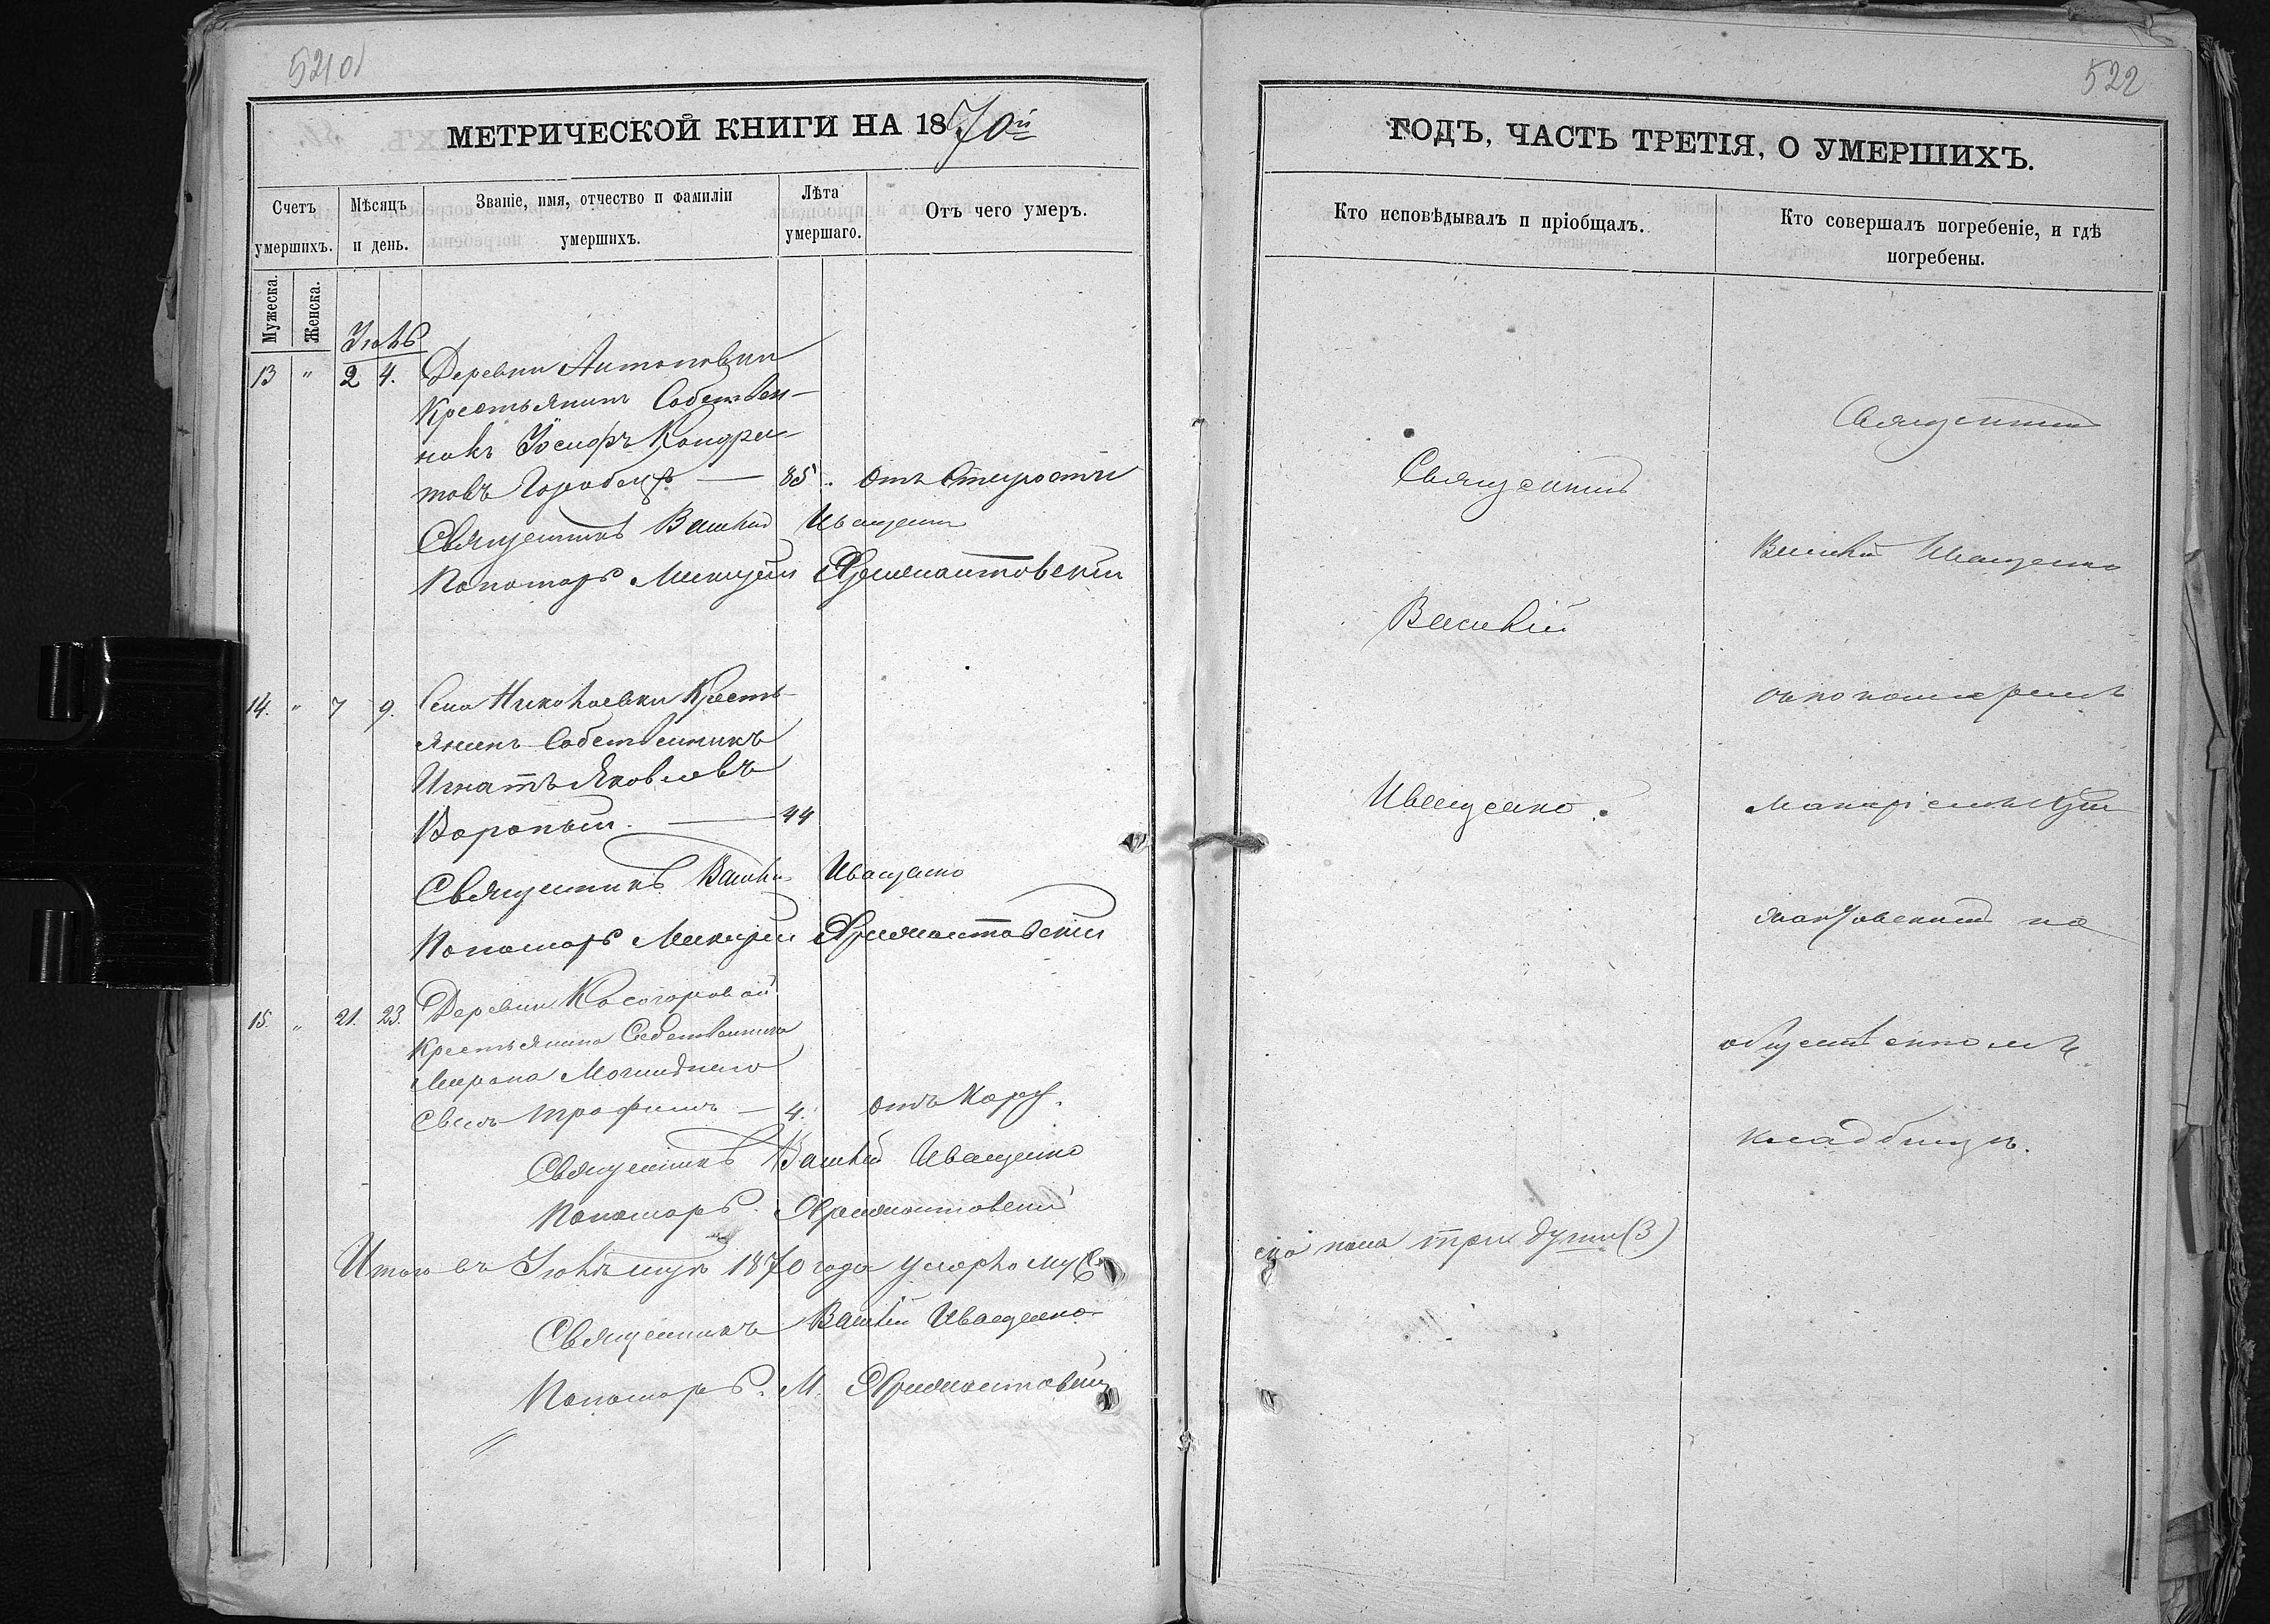 521об
МЕТРИЧЕСКОЙ КНИГИ НА 1870й
Счетъ умершихъ.
Мѣсяцъ и день.
Званіе, имя, отчество и фамиліи умершихъ.
Лѣта умершаго.
Отъ чего умеръ.
Мужеска.
Женска.
Іюль
13 " 2 4. Деревни Антоновки
Крестьянинъ Собствен-
никъ Іосифъ Кондра-
товъ Горобецъ — 85. отъ Старости
Священникъ Василій Иващенко
Пономарь
14. " 7 9. Села Николаевки Кресть-
янинъ Собственникъ
Игнатъ Яковлевъ
Вороный. — 44
Священникъ Василій Иващенко
Пономарь
15. " 21. 23. Деревни Косогоровой
Крестьянина Собственника
Мирона
сынъ Трофимъ — 4. отъ Кору.
Священникъ Василій Иващенко
Пономарь
Итого въ Іюлѣ мцѣ 1870 года умерло муже
Священникъ Василій Иващенко
Пономарь. М.
522
ГОДЪ, ЧАСТЬ ТРЕТІЯ, О УМЕРШИХЪ.
Кто исповѣдывалъ и пріобщалъ.
Кто совершалъ погребеніе, и гдѣ погребены.
Священникъ
Василій
Иващенко.
Священникъ
Василій Иващенко
съ пономаремъ
на
общественномъ
кладбищѣ.
ска пола три души (3)